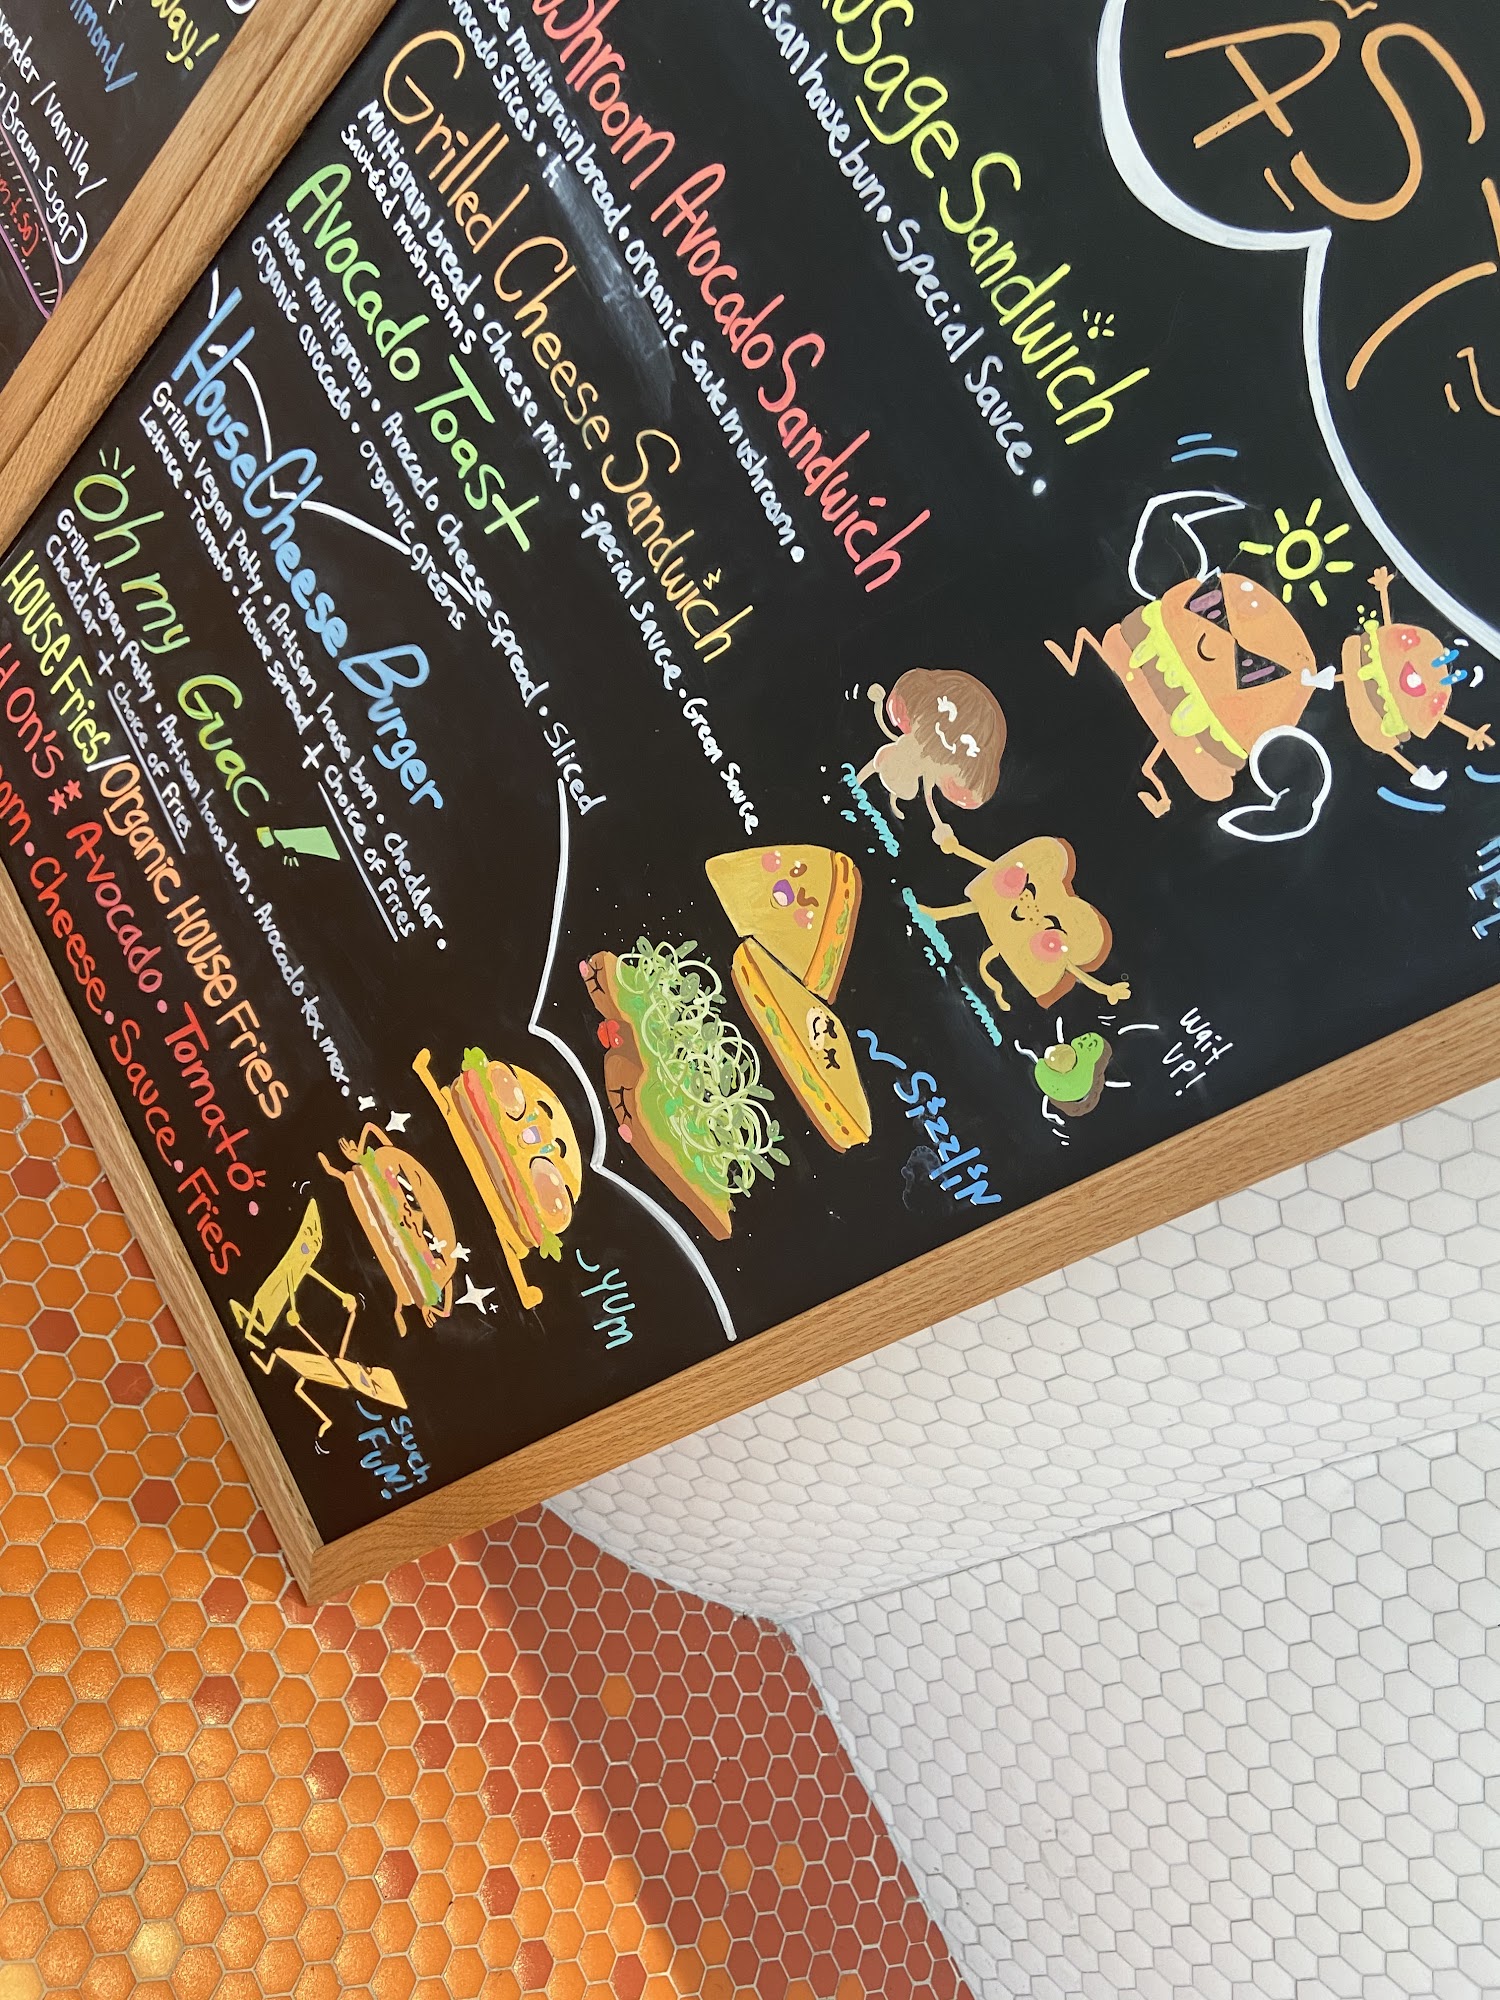 Way!
lmond/
vender/vanilla/
Brown Sugar)
AST
Sage Sandwich
san house bun • Special Sauce •
shroom Avocado Sandwich
se multigrain bread • organic saute mushroom •
Avocado Slices •
Grilled Cheese Sandwich
Multigrain bread • cheese mix • special sauce • Green sauce
Sautéed mushrooms
Avocado Toast
House multigrain • Avocado cheese spread • sliced
organic avocado • organic greens
House Cheese Burger
Grilled vegan Patty • Artisan house bun • cheddar •
Lettuce • Tomato • House spread + choice of fries
Oh my Guac!
Grilled vegan Patty • Artisan house bun • Avocado tex mex •
Cheddar + choice of fries
House Fries/Organic House Fries
d On's ** Avocado • Tomato •
Cheese • Sauce • Fries
Wait
up!
Sizzlin
Yum
Such
Fun!